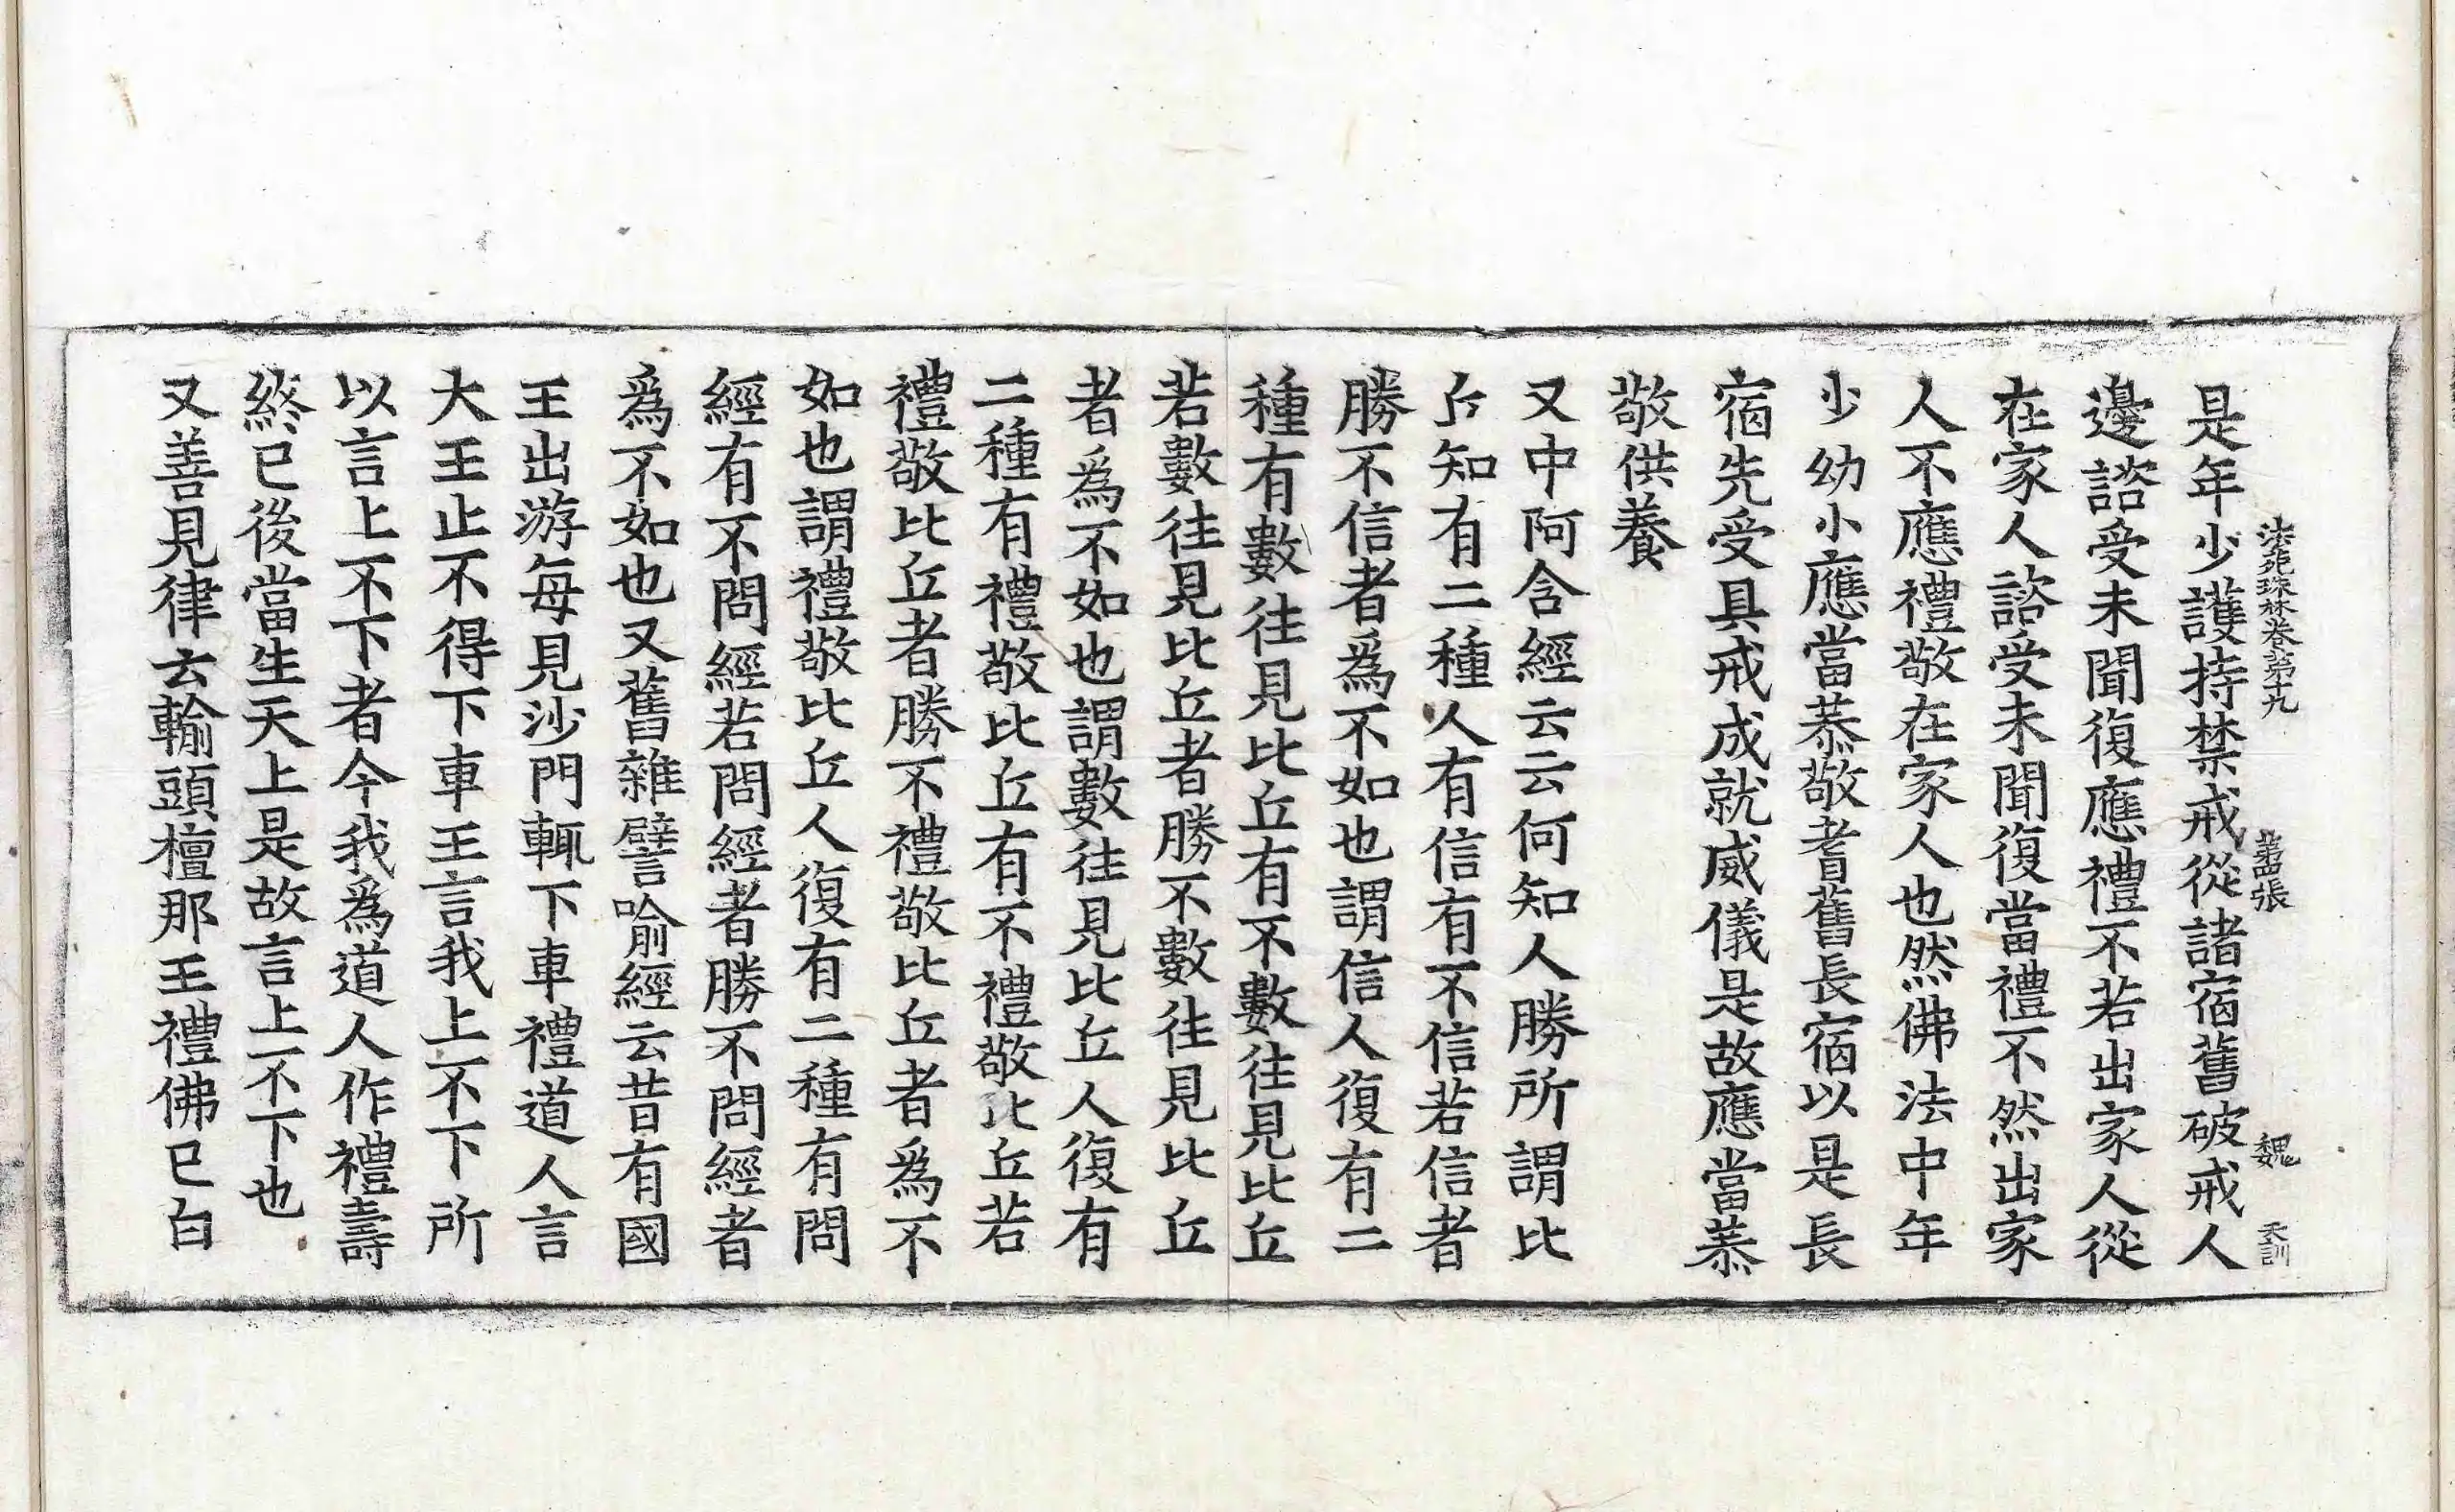 法苑珠林卷第十九 第四張 魏 天訓
是年少護持禁戒從諸宿舊破戒人
邊諮受未聞復應禮不若出家人從
在家人諮受未聞復當禮不然出家
人不應禮敬在家人也然佛法中年
少幼小應當恭敬耆舊長宿以是長
宿先受具戒成就威儀是故應當恭
敬供養
又中阿含經云云何知人勝所謂比
丘知有二種人有信有不信若信者
勝不信者爲不如也謂信人復有二
種有數往見比丘有不數往見比丘
若數往見比丘者勝不數往見比丘
者爲不如也謂數往見比丘人復有
二種有禮敬比丘有不禮敬比丘若
禮敬比丘者勝不禮敬比丘者爲不
如也謂禮敬比丘人復有二種有問
經有不問經若問經者勝不問經者
爲不如也又舊雜譬喻經云昔有國
王出游每見沙門輒下車禮道人言
大王止不得下車王言我上不下所
以言上不下者今我爲道人作禮壽
終已後當生天上是故言上不下也
又善見律云輸頭檀那王禮佛已白